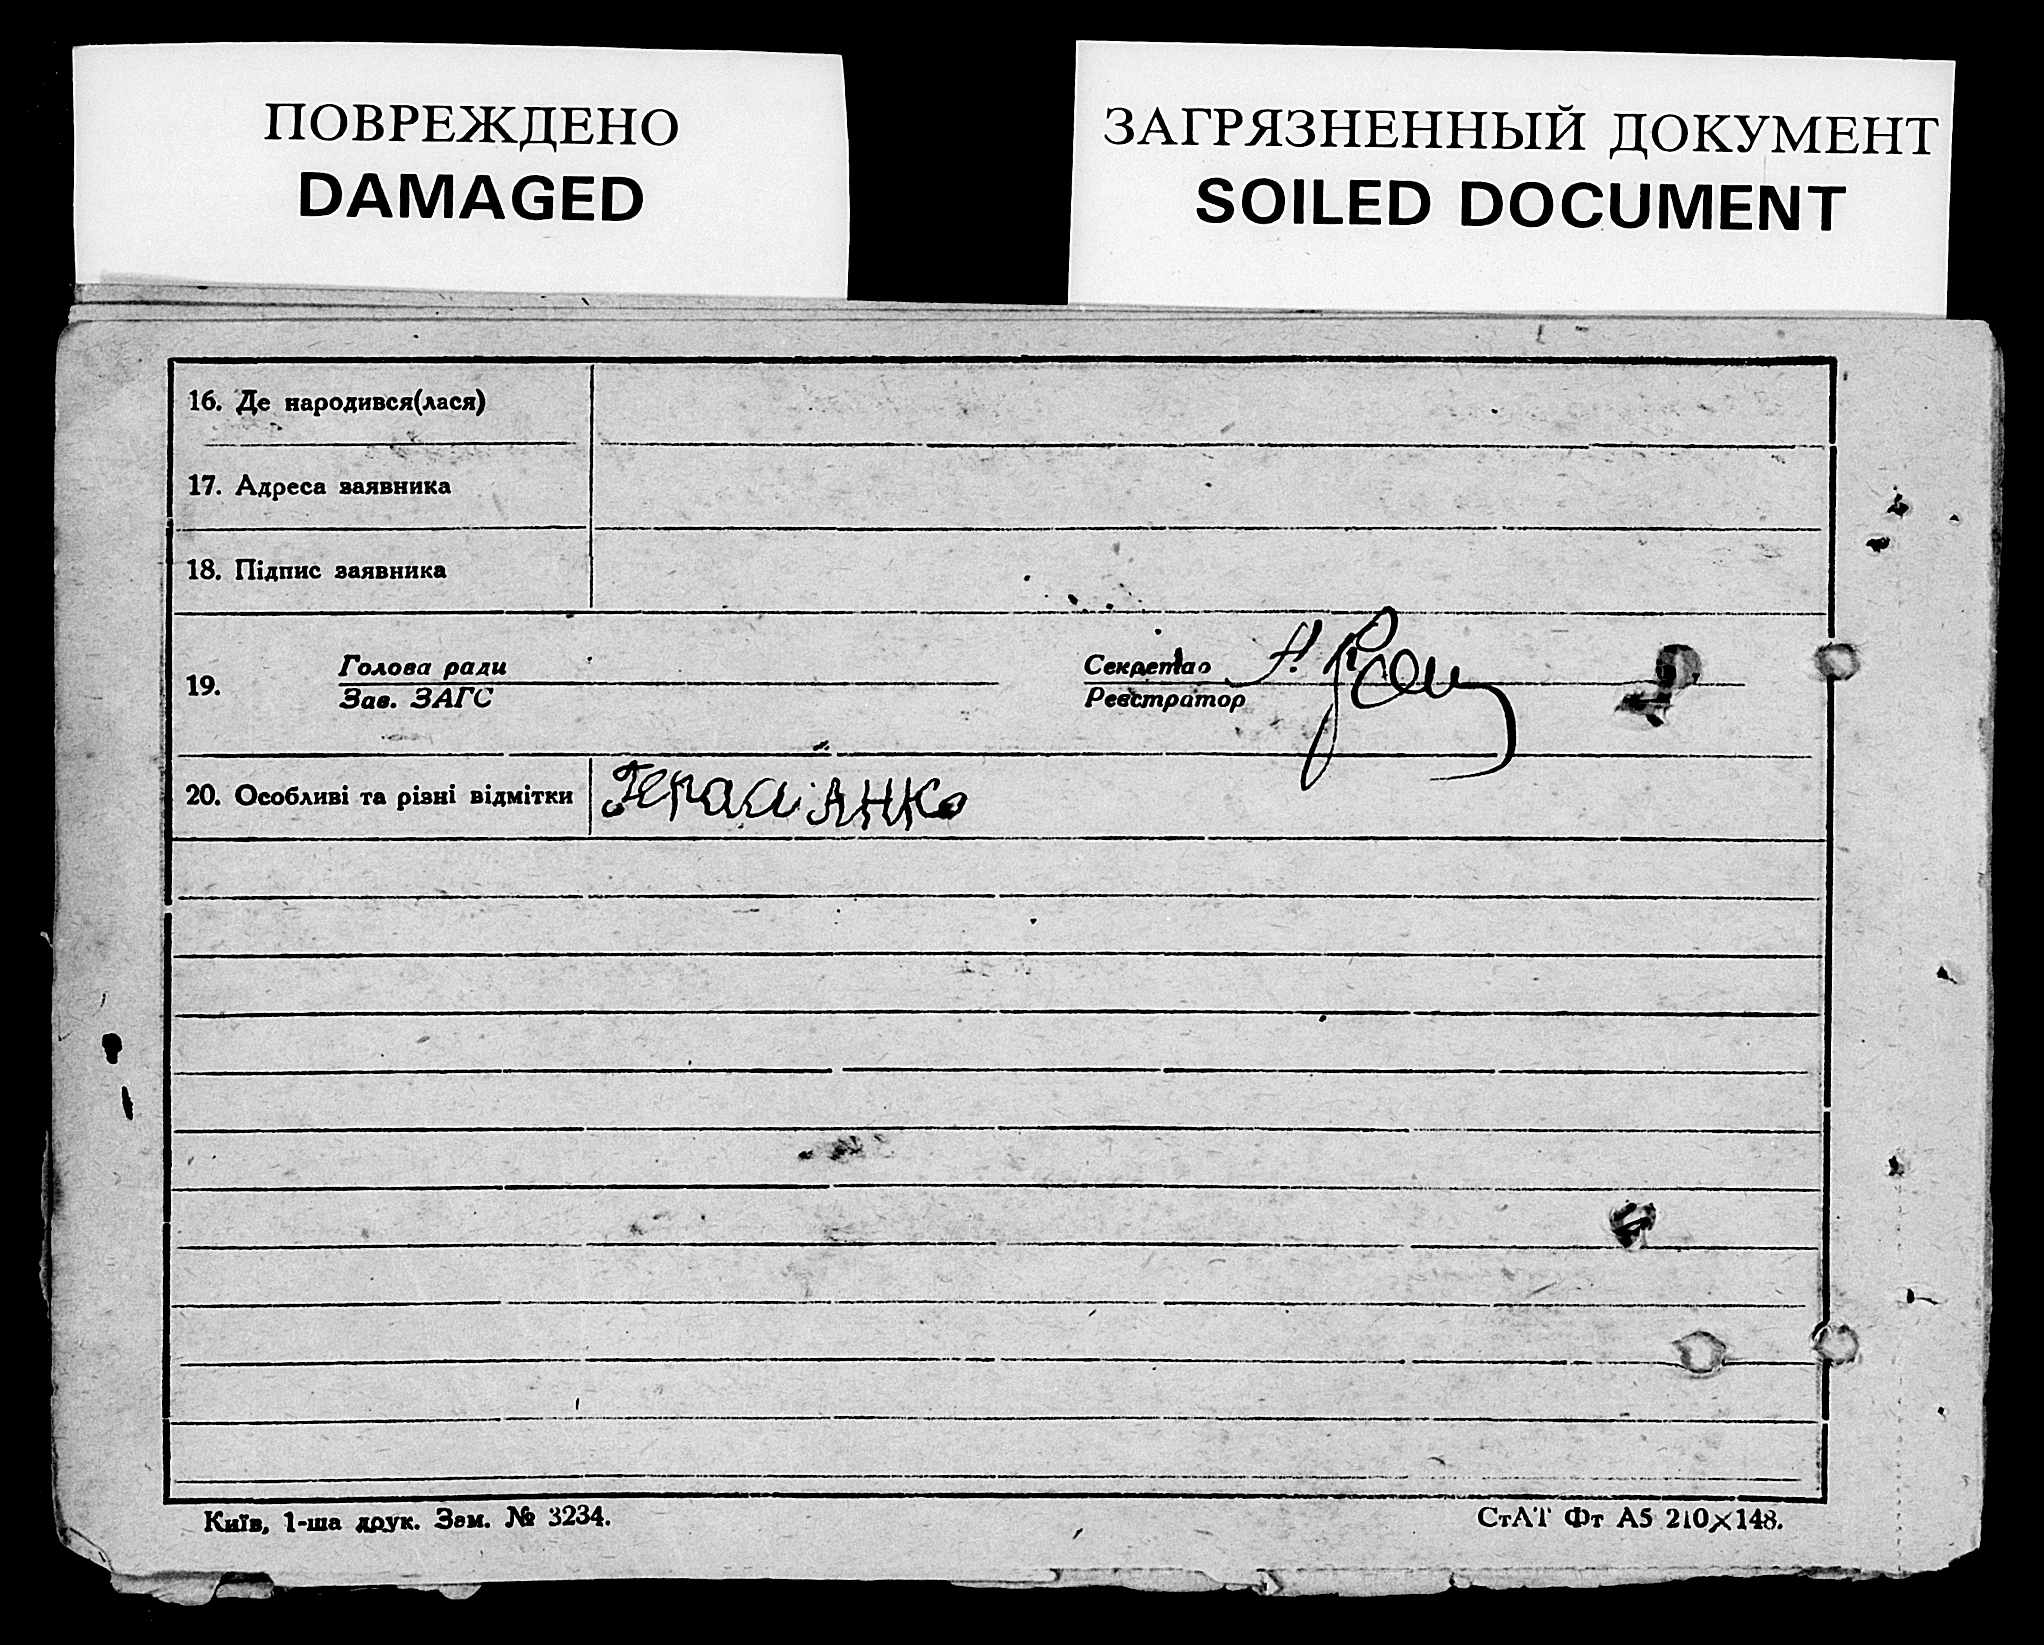 ПОВРЕЖДЕНО
DAMAGED
ЗАГРЯЗНЕННЫЙ ДОКУМЕНТ
SOILED DOCUMENT
16. Де народився(лася)
17. Адреса заявника
18. Підпис заявника
19.
Голова ради
Зав. ЗАГС
Секретар
Реєстратор
20. Особливі та різні відмітки
Київ, 1-ша друк. Зам. № 3234.
СтАТ Фт А5 210×148.